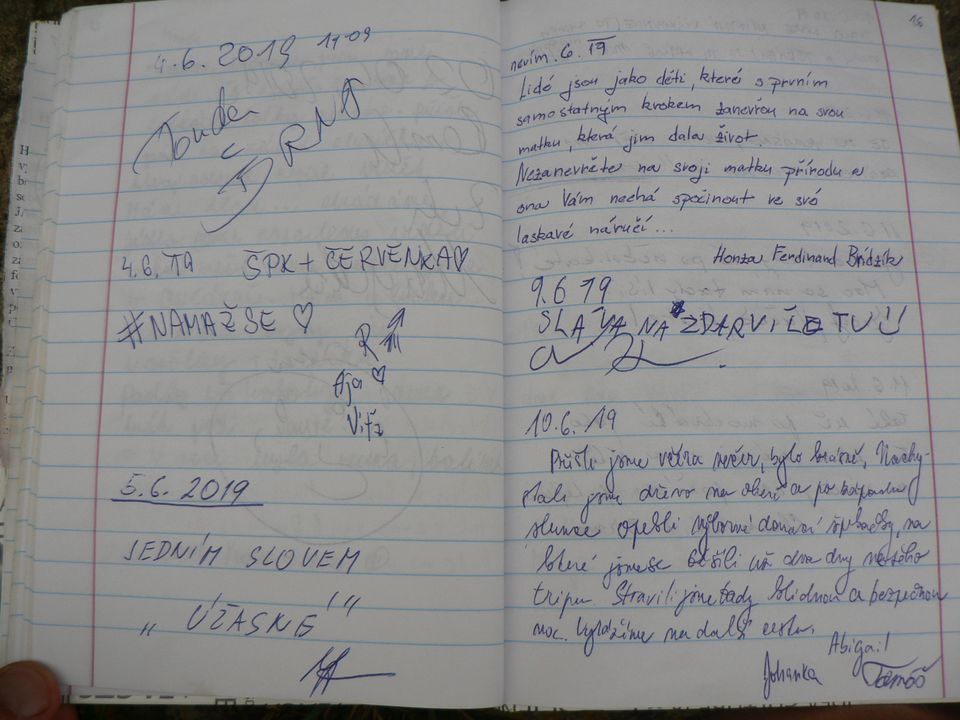 4.6.2019 17:09
Touda
BRNO
4.6. 19 ŠPK + ČERVĚNKA♡
#NAMAŽSE ♡
R
Aja ♡
Vítz
5.6.2019
JEDNÍM SLOVEM
„ ÚŽASNÉ "
16
nevím.6.19
Lidé jsou jako děti, které s prvním
samostatným krokem zanevřou na svou
matku, která jim dala život.
Nezanevřete na svoji matku přírodu a
ona Vám nechá spočinout ve své
laskavé náruči...
Honza Ferdinand Bridzik
9.6 19
SLÁVA NAZDAR VÝLETU
10.6.19
Přišli jsme včera večer, bylo krásně, Nachy-
stali jsme dřevo na oheň a po západu
slunce opekli výborné domácí špekáčky, na
které jsme se těšili už dva dny našeho
tripu. Strávili jsme tady klidnou a bezpečnou
noc. Vyrážíme na další cestu.
Abigail
Johanka Tomáš